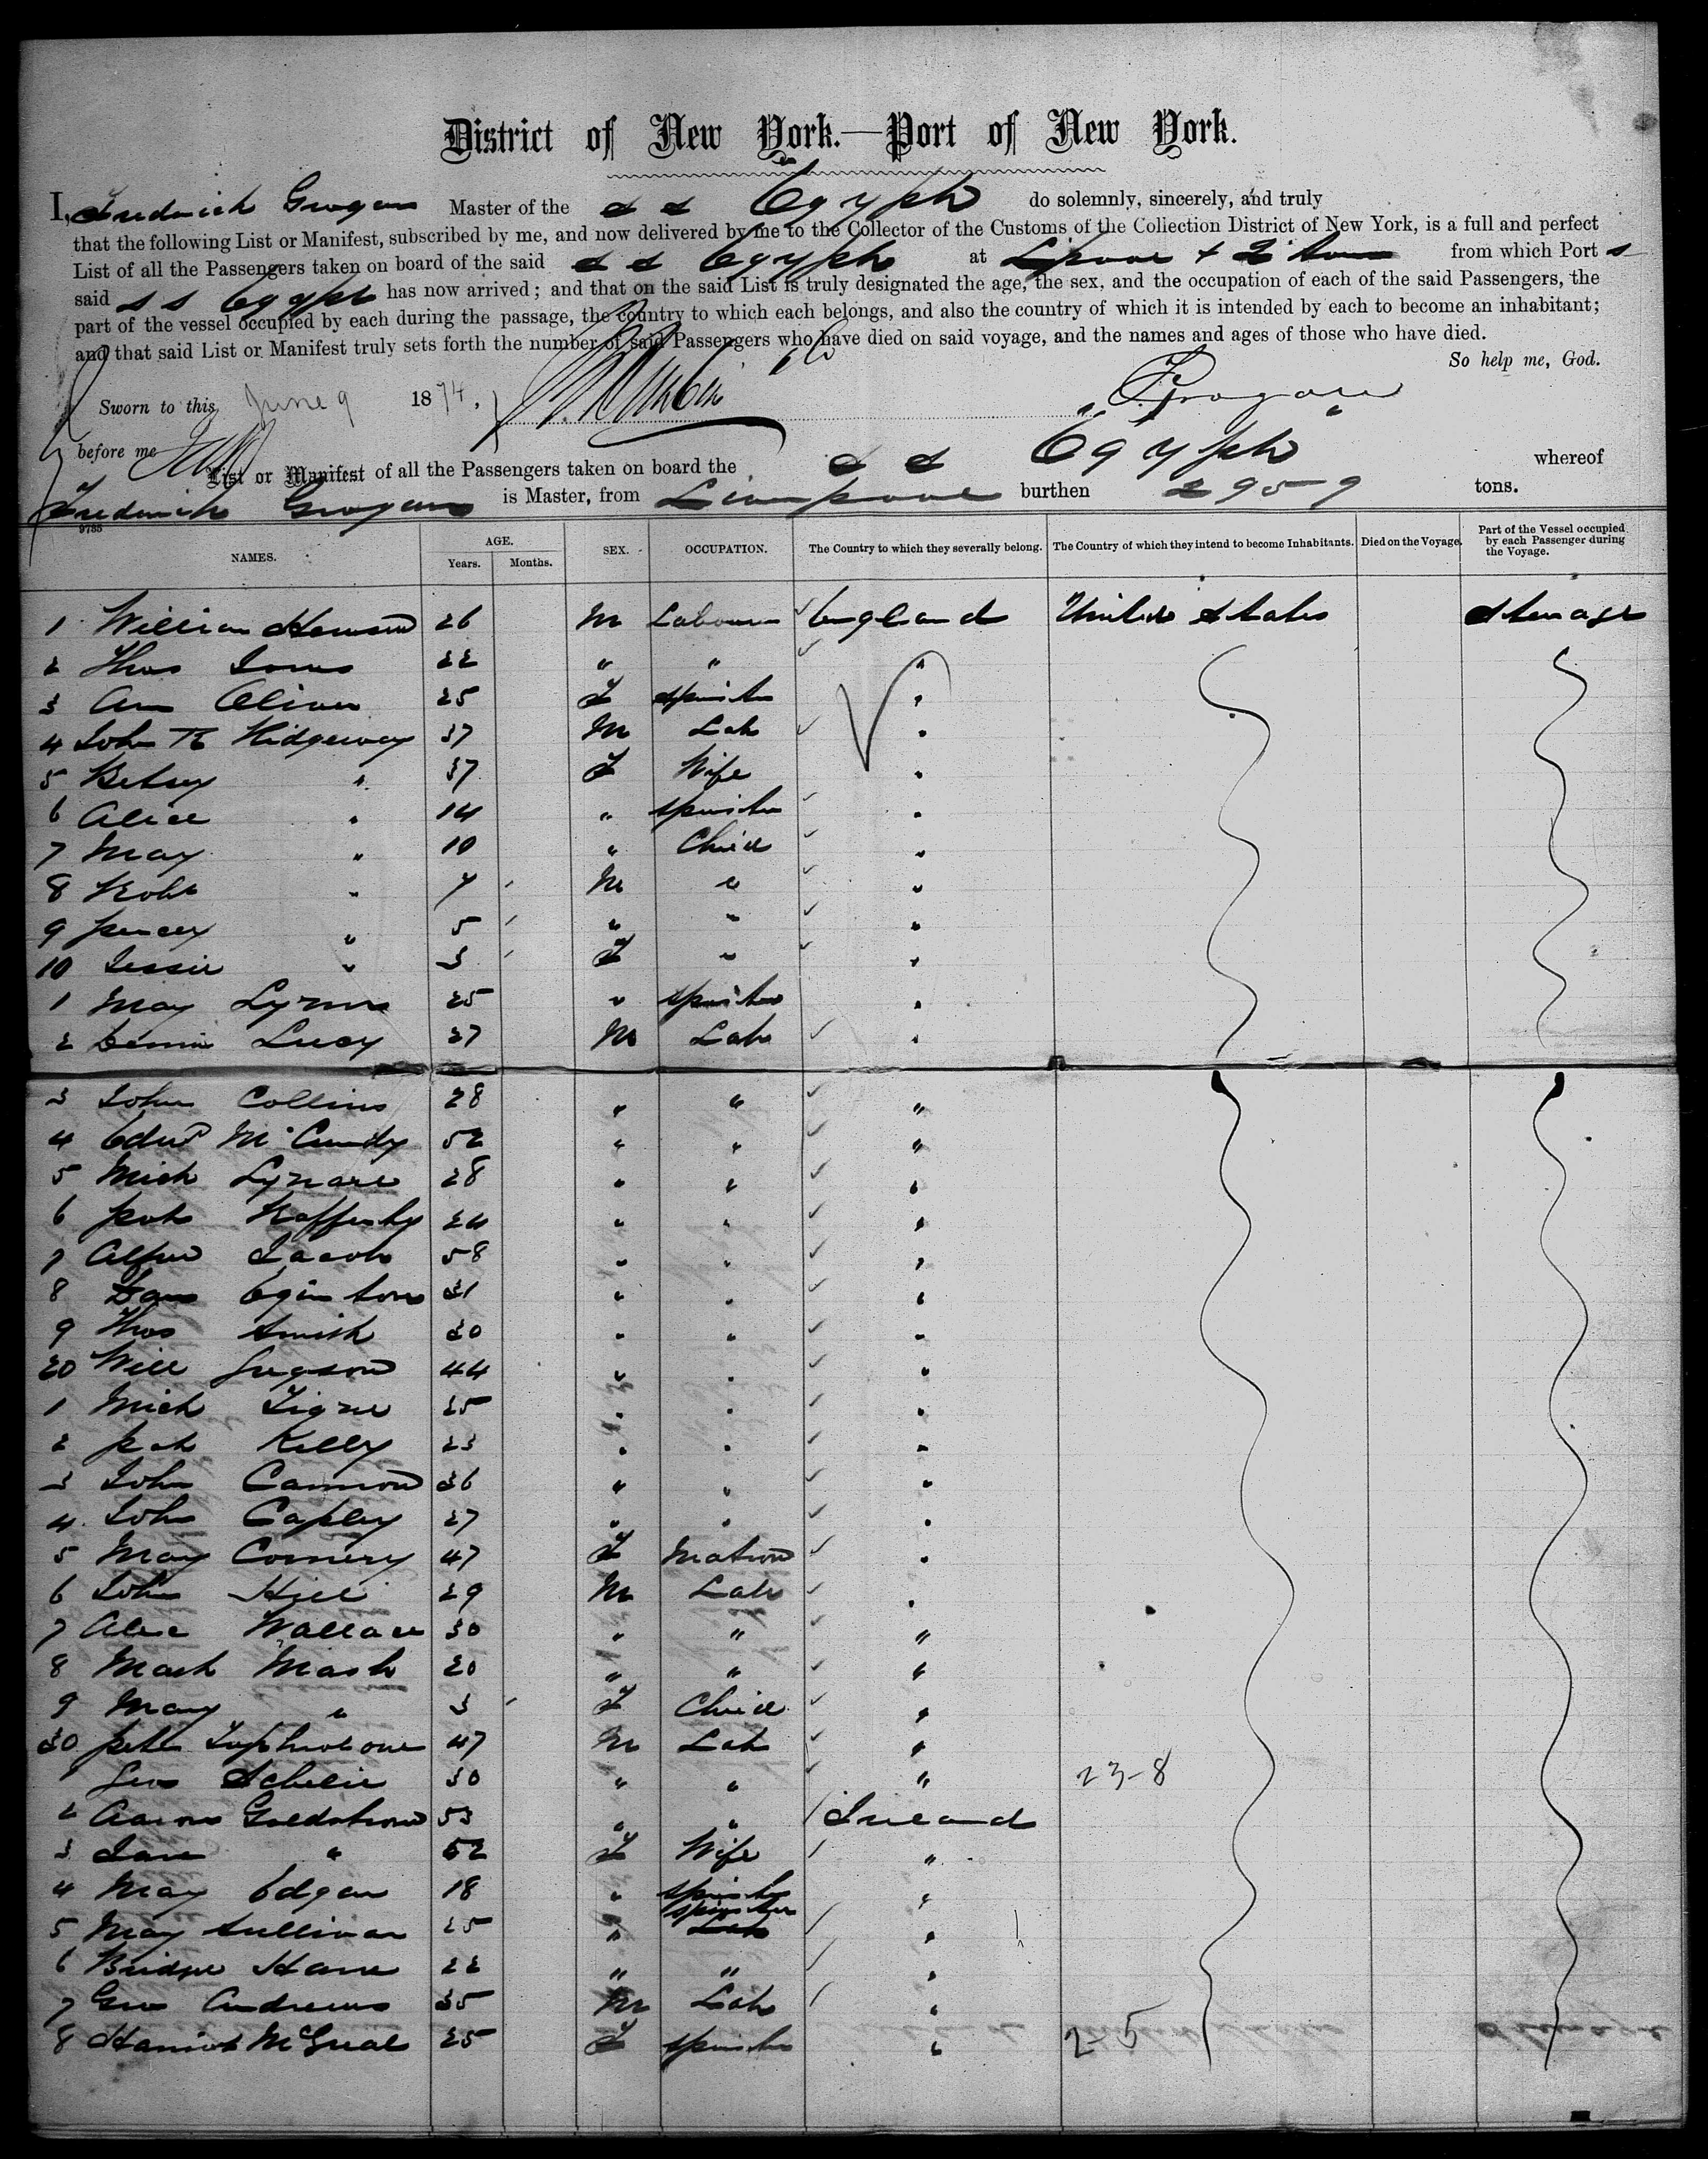 District of New York.—Port of New York.
I, Fredrick Grogan Master of the S S Egypt do solemnly, sincerely, and truly
that the following List or Manifest, subscribed by me, and now delivered by me to the Collector of the Customs of the Collection District of New York, is a full and perfect
List of all the Passengers taken on board of the said S S Egypt at Lpool + Q town from which Port s
said S S Egypt has now arrived; and that on the said List is truly designated the age, the sex, and the occupation of each of the said Passengers, the
part of the vessel occupied by each during the passage, the country to which each belongs, and also the country of which it is intended by each to become an inhabitant;
and that said List or Manifest truly sets forth the number of said Passengers who have died on said voyage, and the names and ages of those who have died.
So help me, God.
Sworn to this June 9 1874, F Grogan
before me
List or Manifest of all the Passengers taken on board the S S Egypt whereof
Fredrick Grogan is Master, from Liverpool burthen 2959 tons.
9786
NAMES. AGE. Years. Months. SEX. OCCUPATION. The Country to which they severally belong. The Country of which they intend to become Inhabitants. Died on the Voyage. Part of the Vessel occupied by each Passenger during the Voyage.
1 William 26 M Labourer England United States Steerage
2 Thos Jones 22 " " "
3 Ann Oliver 25 F Spinster "
4 John Ridgeway 37 M Lab "
5 Betsey " 37 F Wife "
6 Alice " 14 " Spinster "
7 Mary " 10 " Child "
8 Robt " 7 M " "
9 Percy " 5 " " "
10 Jessie " 3 F " "
1 Mary Lyons 25 " Spinster "
2 Dennis Lucy 27 M Lab "
3 John Collins 28 " " "
4 Edwd 52 " " "
5 Mich 28 " " "
6 Pat Rafferty 24 " " "
7 Alfred Jacobs 58 " " "
8 Eginton 31 " " "
9 Thos Smith 30 " " "
20 Will Jugson 44 " " "
1 Mich Tigne 25 " " "
2 Pat Kelly 23 " " "
3 John Cannon 36 " " "
4 John Capley 27 " " "
5 Mary Connery 47 F Matron "
6 John Hill 29 M Lab "
7 Alex Wallace 30 " " "
8 Mark Mash 20 " " "
9 Mary " 3 F Child "
30 Peter 47 M Lab "
1 Geo 30 " " " 23-8
2 Aaron 53 " " Ireland
3 Jane " 52 F Wife "
4 Mary Edgar 18 " Spinster "
5 Mary Sullivan 25 " Spinster "
6 Bridget Hane 22 " " "
7 Geo Andrews 35 M Lab "
8 Harriot 25 F Spinster " 2-5